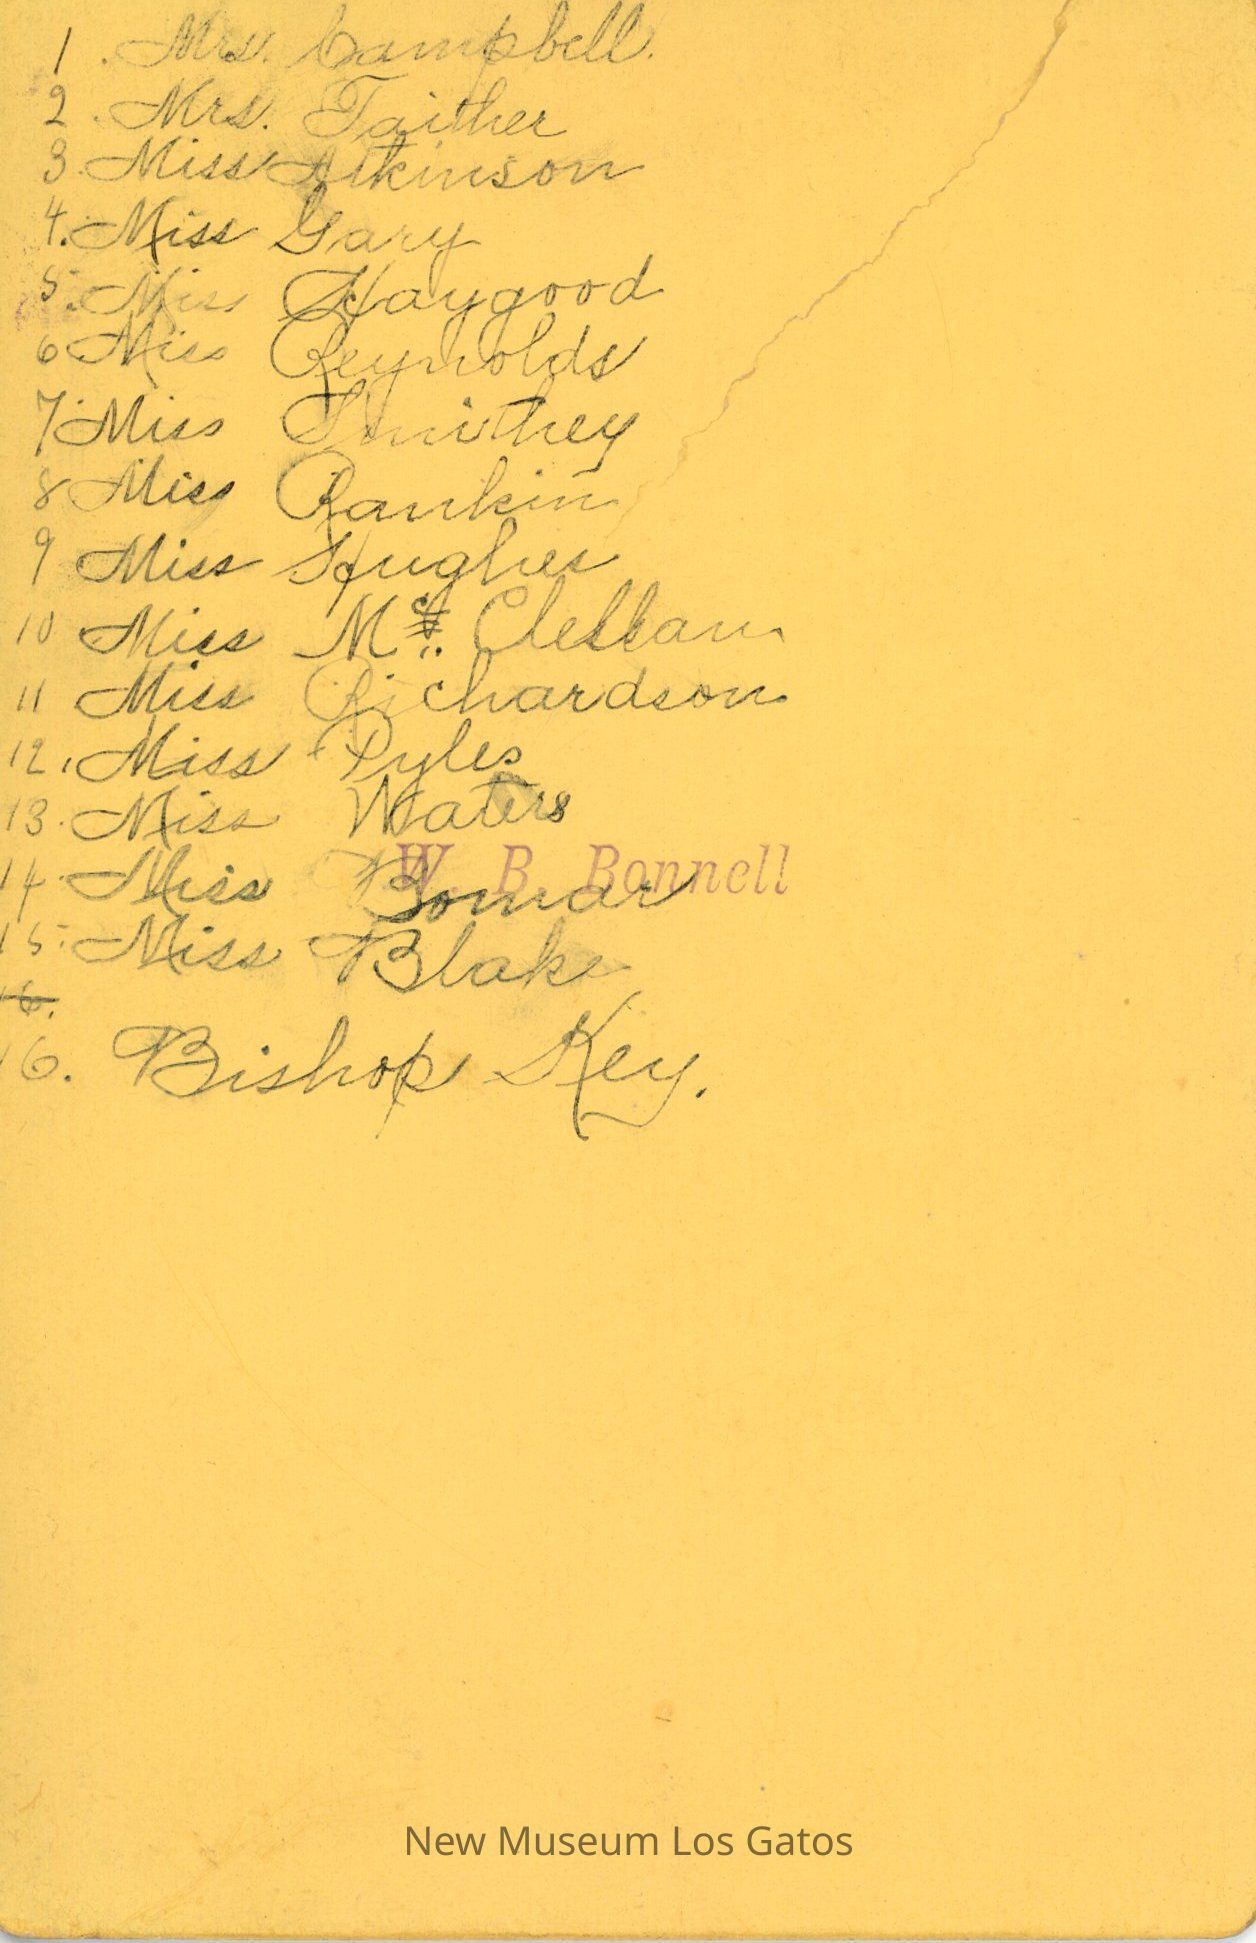 1. Mrs. Campbell.
2. Mrs. Taither
3. Miss Atkinson
4. Miss Gary
5. Miss Haygood
6 Miss Reynolds
7. Miss Smithey
8 Miss Rankin
9 Miss Hughes
10 Miss Mc. Clellan
11 Miss Richardson
12. Miss Pyles
13. Miss Waters
14. Miss Bomar
W. B. Bonnell
15. Miss Blake
16.
16. Bishop Key.
New Museum Los Gatos